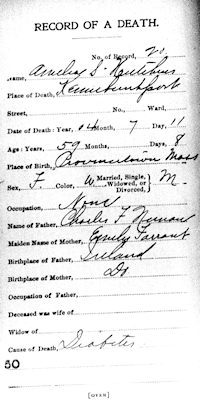 RECORD OF A DEATH.
No. of Record,
Name, Amelia S.
Place of Death, Kennebunkport
Street, No., Ward,
Date of Death: Year, 04 Month, 7 Day, 11
Age: Years, 59 Months, Days, 8
Place of Birth, Provincetown Mass
Sex, F. Color, W. Married, Single, Widowed, or Divorced, M
Occupation, None
Name of Father, Charles F
Maiden Name of Mother, Emily Farrant
Birthplace of Father, Ireland
Birthplace of Mother, Do
Occupation of Father,
Deceased was wife of
Widow of
Cause of Death, Diabetes
50
[OVER]